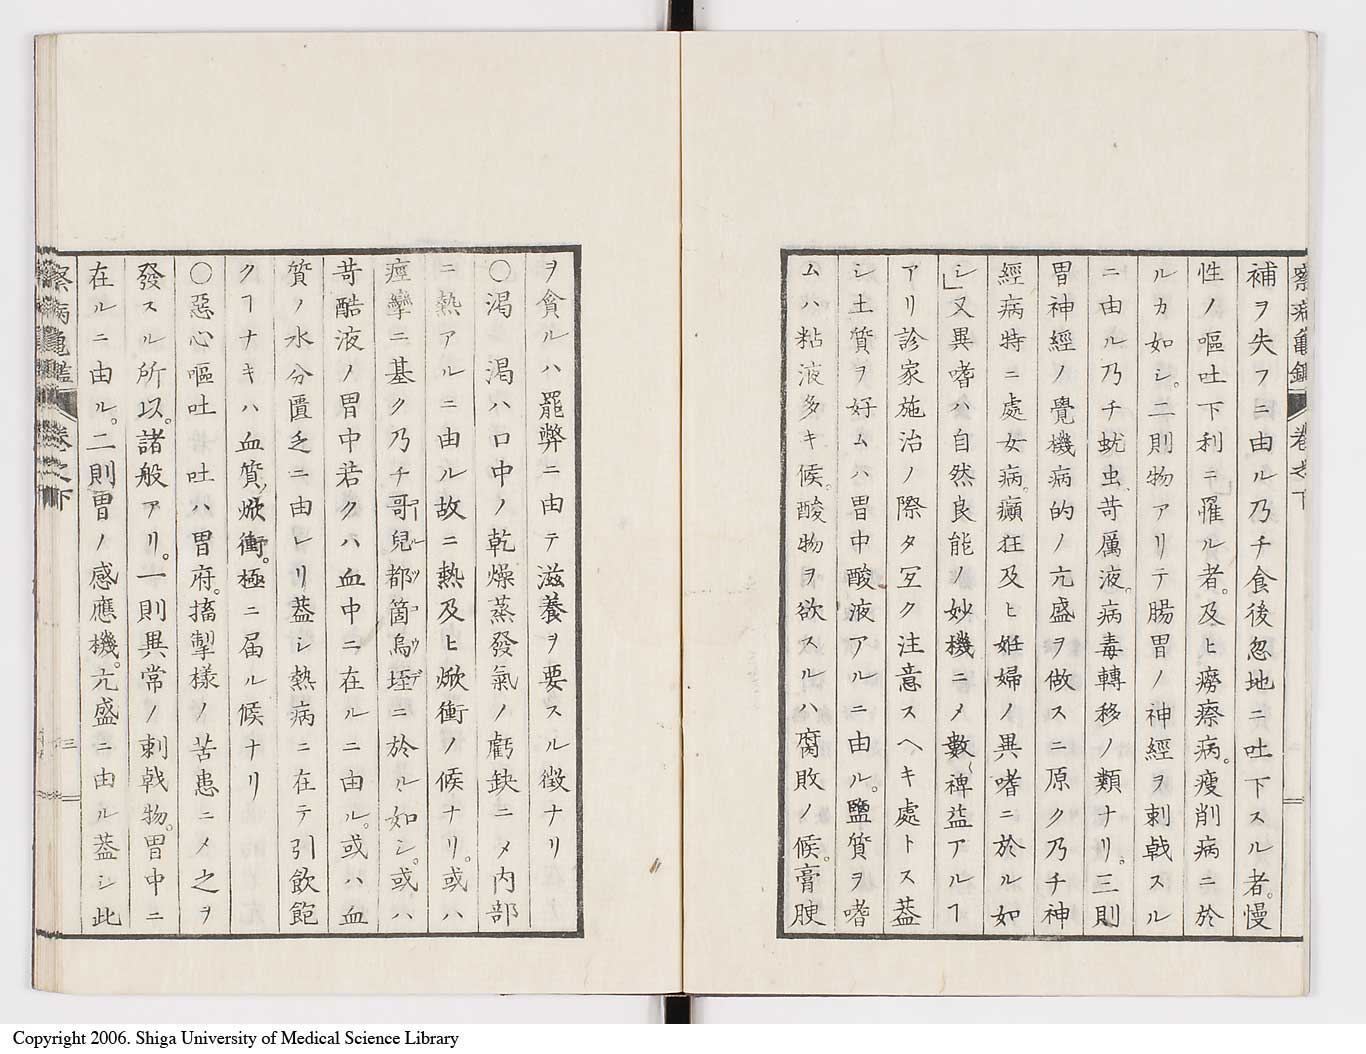 察病亀鑑 卷之下
補ヲ失フニ由ル乃チ食後忽地ニ吐下スル者。慢
性ノ嘔吐下利ニ罹ル者。及ヒ癆瘵病。瘦削病ニ於
ルカ如シ。二則物アリテ腸胃ノ神經ヲ刺戟スル
ニ由ル乃チ蚘虫、苛厲液。病毒轉移ノ類ナリ。三則
胃神經ノ覺機病的ノ亢盛ヲ做スニ原ク乃チ神
經病特ニ處女病。癲狂及ヒ姙婦ノ異嗜ニ於ル如
シ」又異嗜ハ自然良能ノ妙機ニメ數〻裨益アルヿ
アリ診家施治ノ際タ宜ク注意スヘキ處トス葢
シ土質ヲ好ムハ胃中酸液アルニ由ル。鹽質ヲ嗜
ムハ粘液多キ候。酸物ヲ欲スルハ腐敗ノ候。膏腴
ヲ貪ルハ罷弊ニ由テ滋養ヲ要スル徴ナリ
〇渇 渇ハ口中ノ乾燥蒸發氣ノ虧缺ニメ内部
ニ熱アルニ由ル故ニ熱及ヒ焮衝ノ候ナリ。或ハ
痙攣ニ基ク乃チ哥兒都箇烏垤ニ於ル如シ。或ハ
苛酷液ノ胃中若クハ血中ニ在ルニ由ル。或ハ血
質ノ水分匱乏ニ由レリ葢シ熱病ニ在テ引飲飽
クヿナキハ血質焮衝。極ニ届ル候ナリ
〇惡心嘔吐 吐ハ胃府。搐掣樣ノ苦患ニメ之ヲ
發スル所以。諸般アリ。一則異常ノ刺戟物。胃中ニ
在ルニ由ル。二則胃ノ感應機。亢盛ニ由ル葢シ此
察病亀鑑 卷之下
三
Copyright 2006. Shiga University of Medical Science Library